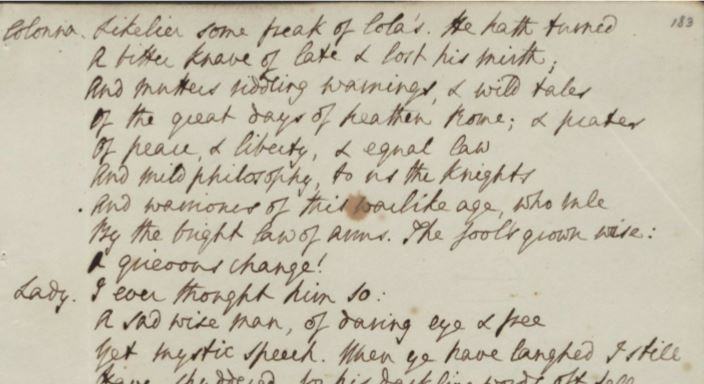 183
Colonna. Likelier some freak of Cola's. He hath turned
A bitter knave of late & lost his mirth,
And mutters riddling warnings, & wild tales
Of the great days of heathen Rome; & prates
Of peace, & liberty, & equal law
And mild philosophy, to us the knights
And warriors of this warlike age, who rule
By the bright law of arms. The fool's grown wise:
A grievous change!
Lady. I ever thought him so:
A sad wise man, of daring eye & free
Yet mystic speech. When ye have laughed I still
Have shuddered, for his darkling words oft fell